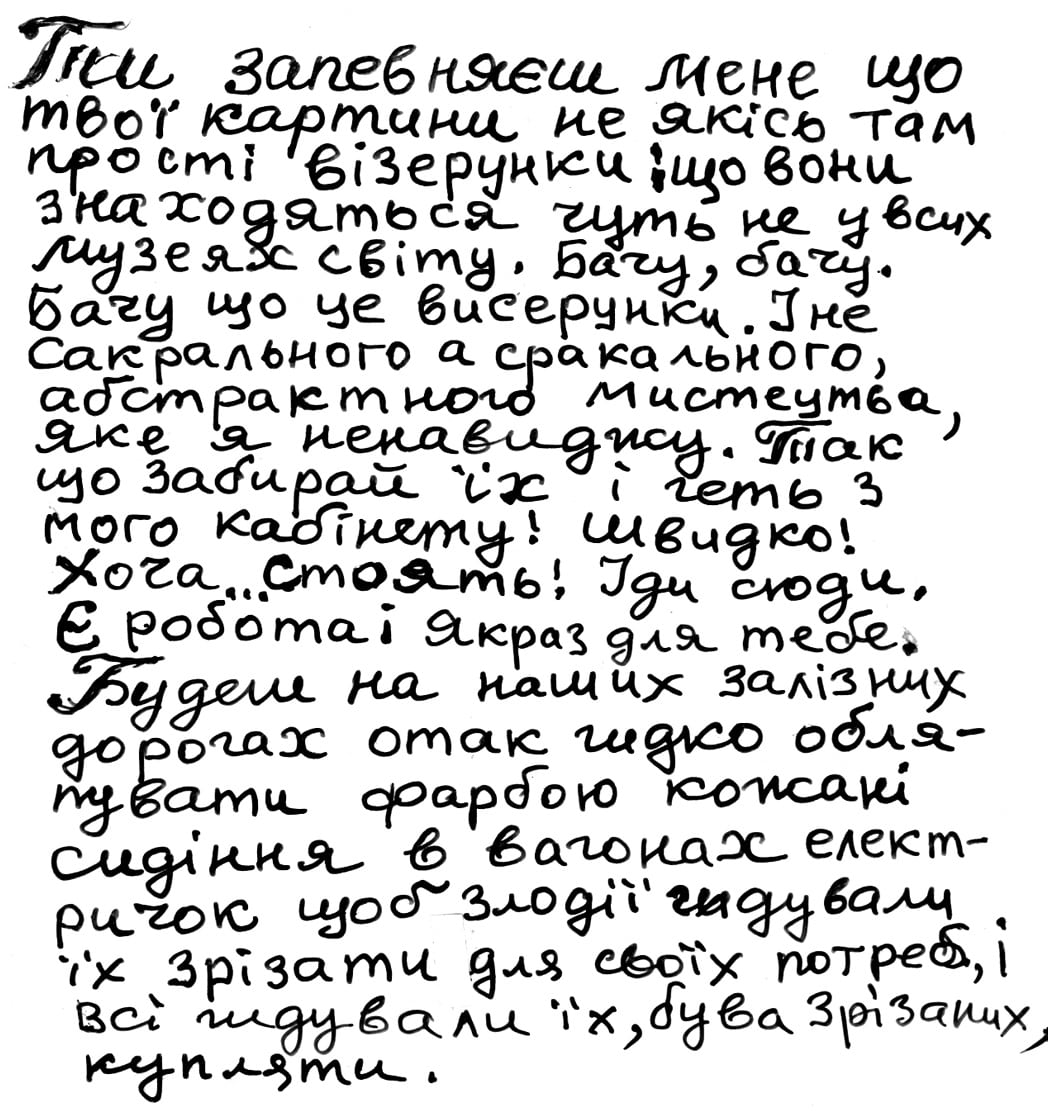 Ти запевняєш мене що
твої картини не якісь там
прості візерунки і що вони
знаходяться чуть не у всих
музеях світу. Бачу, бачу.
Бачу що це висерунки. І не
сакрального а сракального,
абстрактного мистецтва,
яке я ненавиджу. Так
що забирай їх і геть з
мого кабінету! Швидко!
Хоча... Стоять! Іди сюди.
Є робота і якраз для тебе.
Будеш на наших залізних
дорогах отак гидко обля-
пувати фарбою кожані
сидіння в вагонах елект-
ричок щоб злодії гидували
їх зрізати для своїх потреб, і
всі гидували їх, бува зрізаних,
купляти.